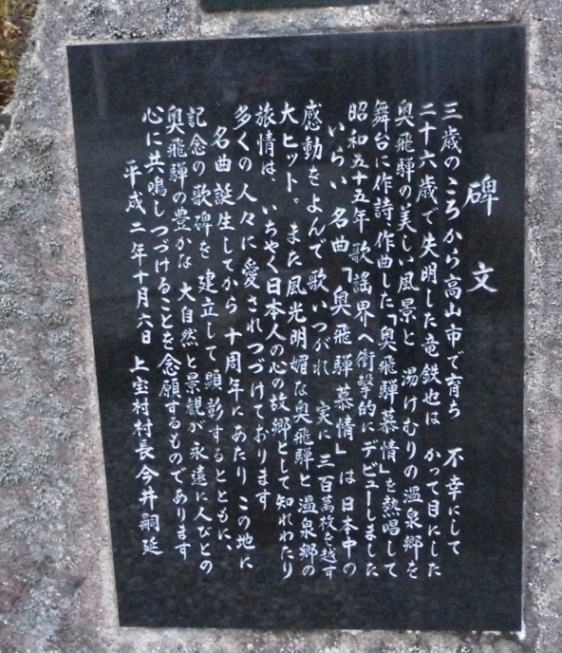 碑文
三歳のころから高山市で育ち 不幸にして
二十六歳で失明した竜鉄也は かって目にした
奥飛騨の美しい風景と 湯けむりの温泉郷を
舞台に作詩 作曲した「奥飛騨慕情」を熱唱して
昭和五十五年 歌謡界へ衝撃的にデビューしました
いらい 名曲「奥飛騨慕情」は日本中の
感動をよんで歌いつがれ 実に三百萬枚を越す
大ヒット。また風光明媚な奥飛騨と温泉郷の
旅情は、いちやく日本人の心の故郷として知れわたり
多くの人々に愛されつづけております
名曲誕生してから 十周年にあたり この地に
記念の歌碑を 建立して顕彰するとともに、
奥飛騨の豊かな 大自然と景観が永遠に人びとの
心に共鳴しつづけることを念願するものであります
平成二年十月六日 上宝村村長今井嗣延